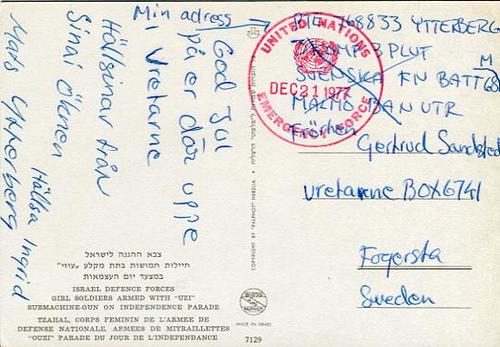 Min adress
God Jul
på er där uppe
i Vretarne
Hälsingar från
Sinai Öknen
Mats Ytterberg
Hälsa Ingrid
צבא ההגנה לישראל
חיילות חמושות בתת מקלע "עוזי"
במצעד יום העצמאות
ISRAEL DEFENCE FORCES
GIRL SOLDIERS ARMED WITH "UZI"
SUBMACHINE-GUN ON INDEPENDENCE PARADE
TZAHAL, CORPS FEMININ DE L'ARMEE DE
DEFENSE NATIONALE, ARMEES DE MITRAILLETTES
"OUZI" PARADE DU JOUR DE L'INDEPENDANCE
COPYRIGHT BY "PALPHOT" HERZLIA
MADE IN ISRAEL
7129
UNITED NATIONS
DEC 21 1977
EMERGENCY FORCE
768833 YTTERBERG
KOMP 3 PLUT
SVENSKA FN BATT
M
681
MALMÖ BAN UTR
Fröken
Gertrud Sandsted
Vretarne BOX 6741
Fagersta
Sweden